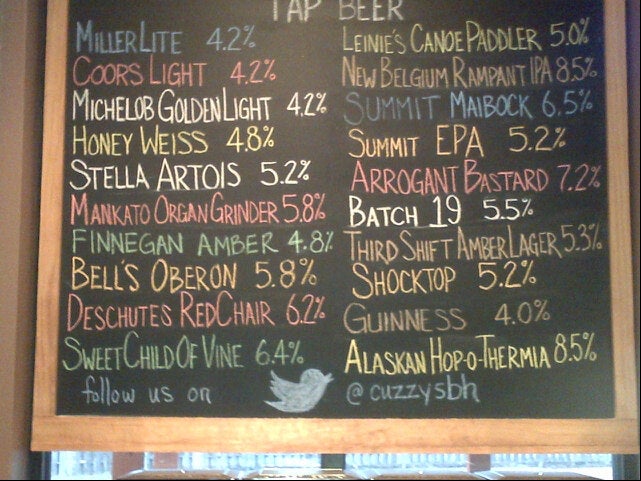 TAP BEER
MILLER LITE 4.2%
COORS LIGHT 4.2%
MICHELOB GOLDEN LIGHT 4.2%
HONEY WEISS 4.8%
STELLA ARTOIS 5.2%
MANKATO ORGAN GRINDER 5.8%
FINNEGAN AMBER 4.8%
BELL'S OBERON 5.8%
DESCHUTE'S RED CHAIR 6.2%
SWEET CHILD OF VINE 6.4%
LEINIE'S CANOE PADDLER 5.0%
NEW BELGIUM RAMPANT IPA 8.5%
SUMMIT MAIBOCK 6.5%
SUMMIT EPA 5.2%
ARROGANT BASTARD 7.2%
BATCH 19 5.5%
THIRD SHIFT AMBER LAGER 5.3%
SHOCKTOP 5.2%
GUINNESS 4.0%
ALASKAN HOP-O-THERMIA 8.5%
follow us on @cuzzysbh